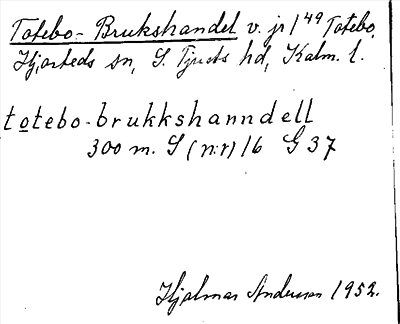 Totebo-Brukshandel v. jr 1⁴⁹ Totebo,
Hjorteds sn, S. Tjusts hd, Kalm. l.
totebo-brukkshanndell
300 m. S (n:r) 16 G 37
Hjalmar Andersson 1952.